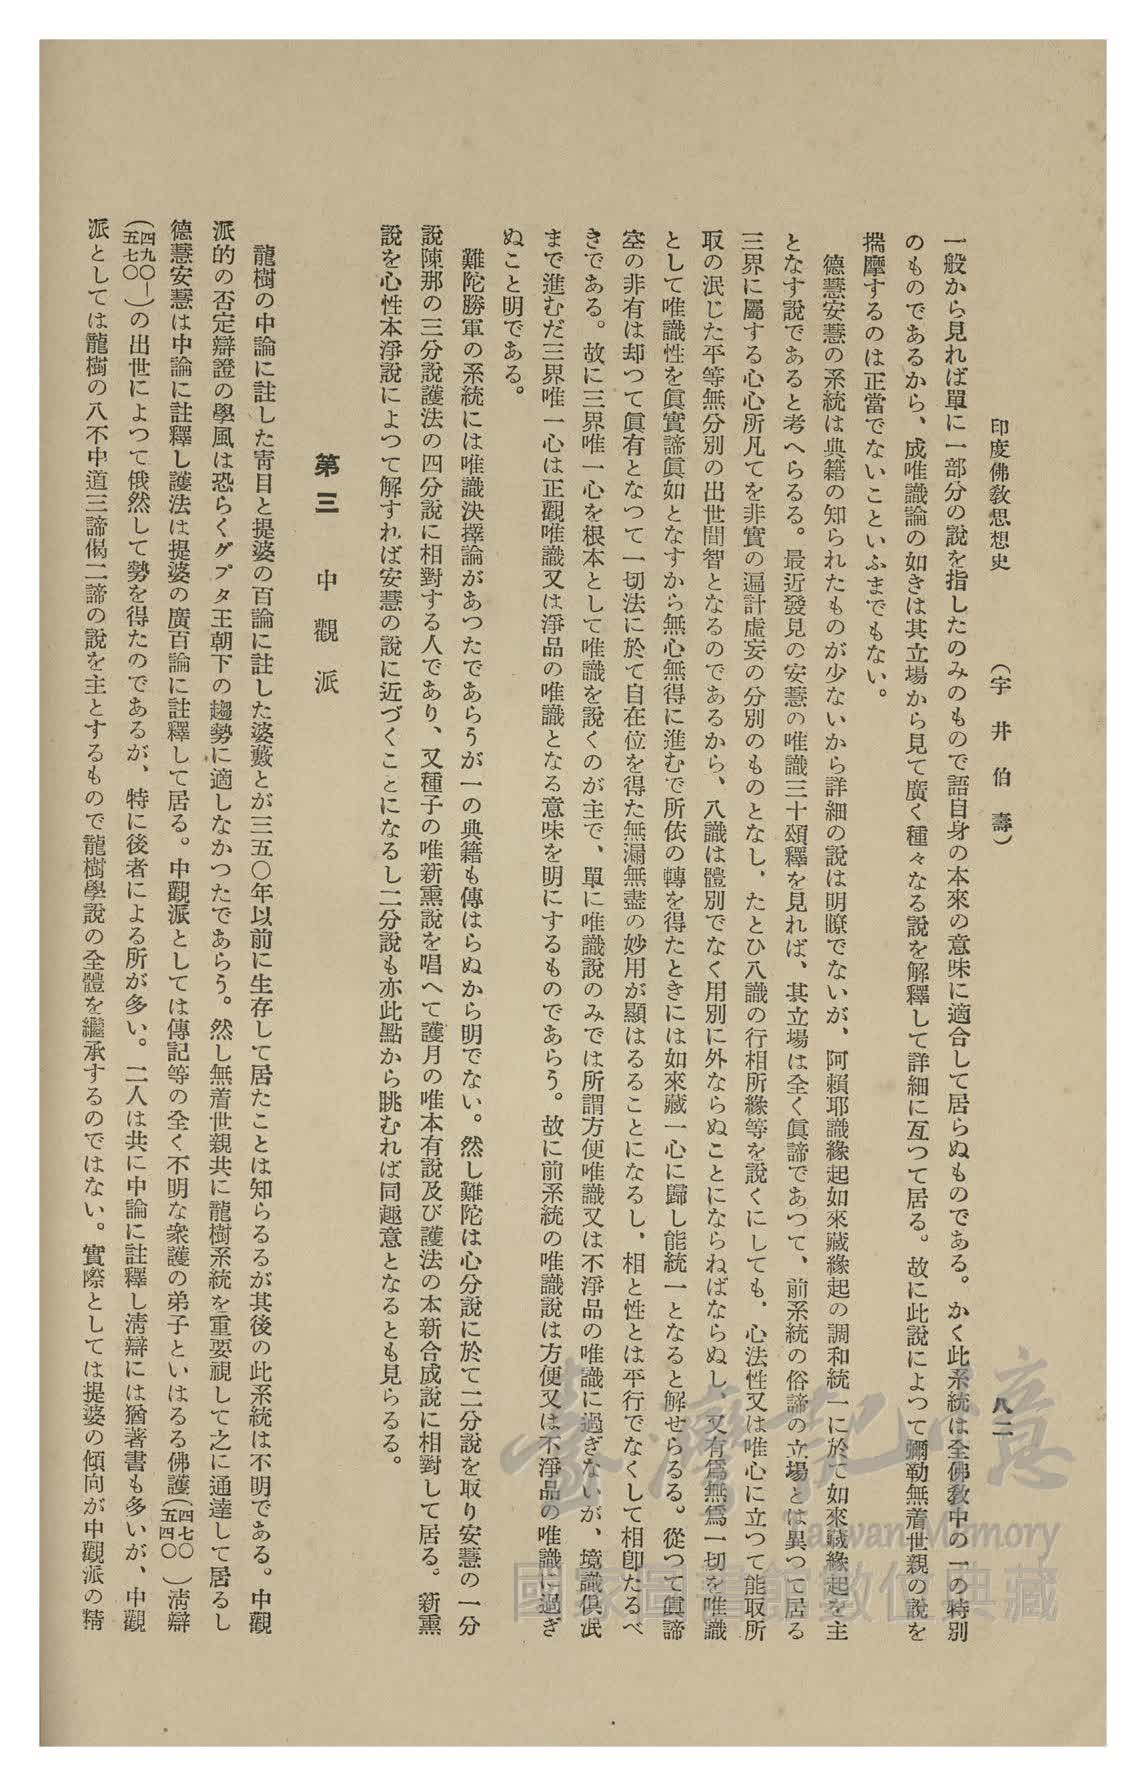 印度佛敎思想史　　（宇井伯壽）　　八二
一般から見れば單に一部分の說を指したのみのもので語自身の本來の意味に適合して居らぬものである。かく此系統は全佛敎中の一の特別
のものであるから、成唯識論の如きは其立場から見て廣く種々なる說を解釋して詳細に亙つて居る。故に此說によつて彌勒無着世親の說を
揣摩するのは正當でないこといふまでもない。
德慧安慧の系統は典籍の知られたものが少ないから詳細の說は明瞭でないが、阿賴耶識緣起如來藏緣起の調和統一に於て如來藏緣起を主
となす說であると考へらるる。最近發見の安慧の唯識三十頌釋を見れば、其立場は全く眞諦であつて、前系統の俗諦の立場とは異つて居る
三界に屬する心心所凡てを非實の遍計虛妄の分別のものとなし、たとひ八識の行相所緣等を說くにしても、心法性又は唯心に立つて能取所
取の泯じた平等無分別の出世間智となるのであるから、八識は體別でなく用別に外ならぬことにならねばならぬし、又有爲無爲一切を唯識
として唯識性を眞實諦眞如となすから無心無得に進むで所依の轉を得たときには如來藏一心に歸し能統一となると解せらるる。從つて眞諦
空の非有は却つて眞有となつて一切法に於て自在位を得た無漏無盡の妙用が顯はるることになるし、相と性とは平行でなくして相卽たるべ
きである。故に三界唯一心を根本として唯識を說くのが主で、單に唯識說のみでは所謂方便唯識又は不淨品の唯識に過ぎないが、境識俱泯
まで進むだ三界唯一心は正觀唯識又は淨品の唯識となる意味を明にするものであらう。故に前系統の唯識說は方便又は不淨品の唯識に過ぎ
ぬこと明である。
難陀勝軍の系統には唯識決擇論があつたであらうが一の典籍も傳はらぬから明でない。然し難陀は心分說に於て二分說を取り安慧の一分
說陳那の三分說護法の四分說に相對する人であり、又種子の唯新熏說を唱へて護月の唯本有說及び護法の本新合成說に相對して居る。新熏
說を心性本淨說によつて解すれば安慧の說に近づくことになるし二分說も亦此點から眺むれば同趣意となるとも見らるる。
第三　中觀派
龍樹の中論に註した靑目と提婆の百論に註した婆藪とが三五〇年以前に生存して居たことは知らるるが其後の此系統は不明である。中觀
派的の否定辯證の學風は恐らくグプタ王朝下の趨勢に適しなかつたであらう。然し無着世親共に龍樹系統を重要視して之に通達して居るし
德慧安慧は中論に註釋し護法は提婆の廣百論に註釋して居る。中觀派としては傳記等の全く不明な衆護の弟子といはるる佛護（四七〇五四〇）淸辯
（四九〇—五七〇）の出世によつて俄然して勢を得たのであるが、特に後者による所が多い。二人は共に中論に註釋し淸辯には猶著書も多いが、中觀
派としては龍樹の八不中道三諦偈二諦の說を主とするもので龍樹學說の全體を繼承するのではない。實際としては提婆の傾向が中觀派の精
臺灣記憶
Taiwan Memory
國家圖書館數位典藏